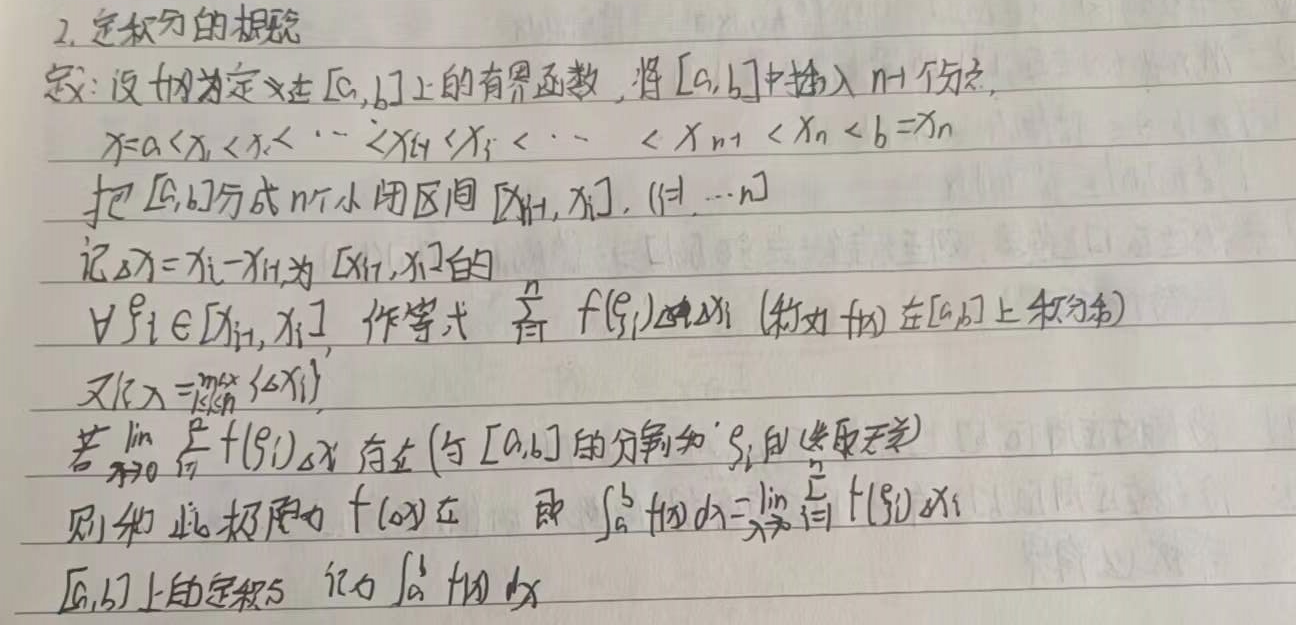 2. 定积分的概念
定义: 设f(x)为定义在[a,b]上的有界函数,将[a,b]中插入n-1个分点,
x=a<x₁<x₂<…<xᵢ₋₁<xᵢ<… <xₙ₋₁<xₙ<b=xₙ
把[a,b]分成n个小闭区间[xᵢ₋₁,xᵢ]. (i=1,…n]
记△x=xᵢ-xᵢ₋₁,为[xᵢ₋₁,xᵢ]的
∀ξᵢ∈[xᵢ₋₁,xᵢ], 作等式 ∑ⁿᵢ₌₁ f(ξᵢ)△xᵢ (称为f(x)在[a,b]上积分和)
又记λ=max 1≤i≤n {△xᵢ}
若 lim λ→0 ∑ⁿᵢ₌₁ f(ξᵢ)△x 存在(与[a,b]的分割和ξᵢ的选取无关)
则称此极限为f(x)在 即 ∫ₐᵇ f(x)dx=lim λ→0 ∑ⁿᵢ₌₁ f(ξᵢ)△xᵢ
[a,b]上的定积分 记为 ∫ₐᵇ f(x)dx